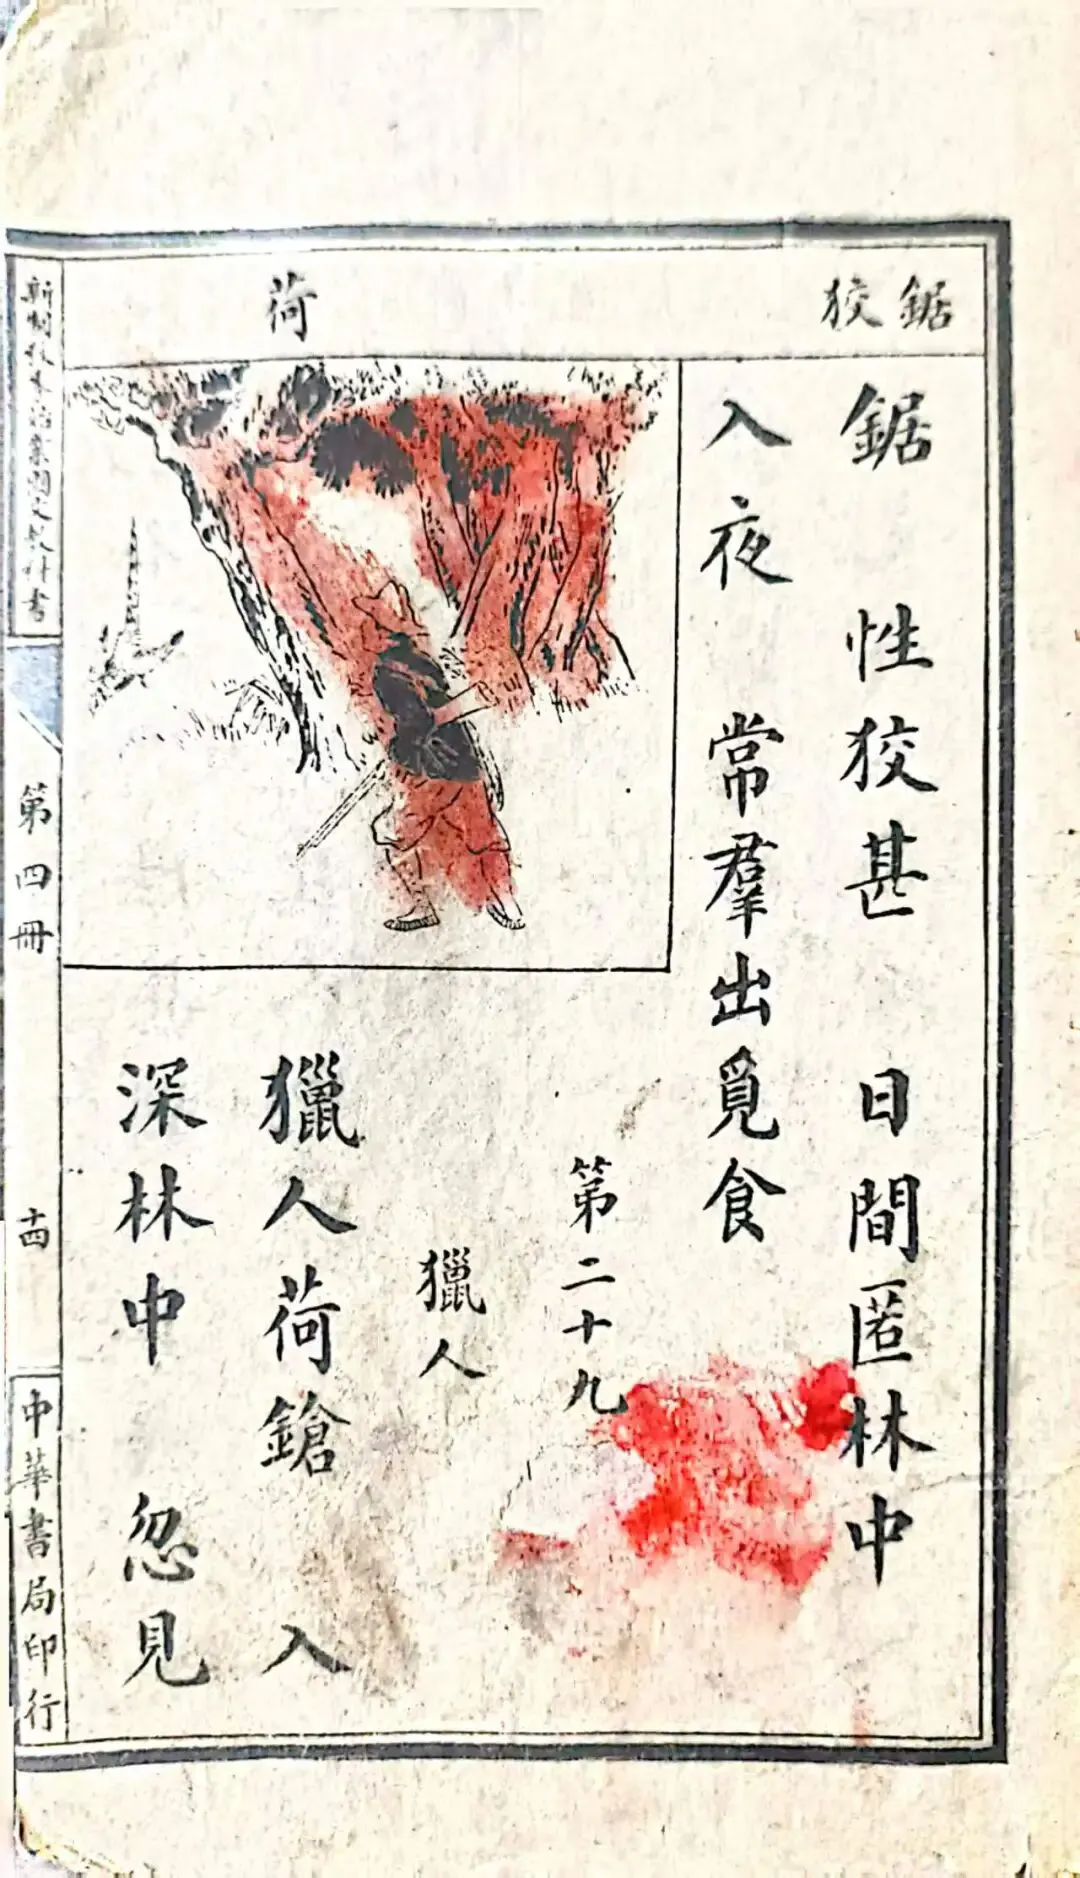 鋸狡
荷
鋸 性狡甚 日間匿林中
入夜 常羣出覓食
第二十九
獵人
獵人荷鎗 入
深林中 忽見
新制秋季始業國文教科書
第四冊
十四
中華書局印行